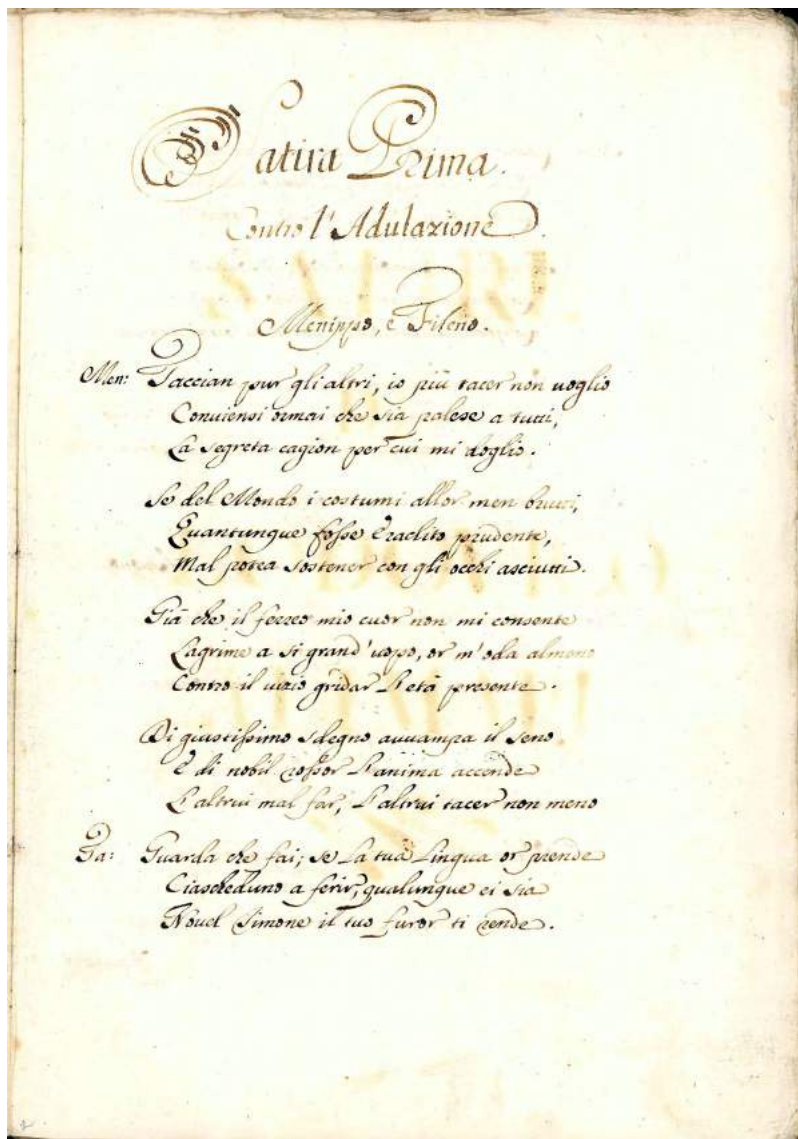 Satira Prima.
Contro l'Adulazione.
Menippo, e Fileno.
Men: Taccian pur gli altri, io più tacer non uoglio
Conviensi ormai che sia palese a tutti,
La segreta cagion per cui mi doglio.
Se del Mondo i costumi allor men brutti,
Quantunque fosse Eraclito prudente,
Mal potea sostener con gli occhi asciutti.
Già che il ferreo mio cuor non mi consente
Lagrime a sì grand'uopo, or m'oda almeno
Contro il uizio gridar l'età presente.
Di giustissimo sdegno auuampa il seno
E di nobil rossor l'anima accende
L'altrui mal far, l'altrui tacer non meno
Guarda che fai; se la tua Lingua or prende
Ciascheduno a ferir, qualunque ei sia
Nouel Timone il tuo furor ti rende.